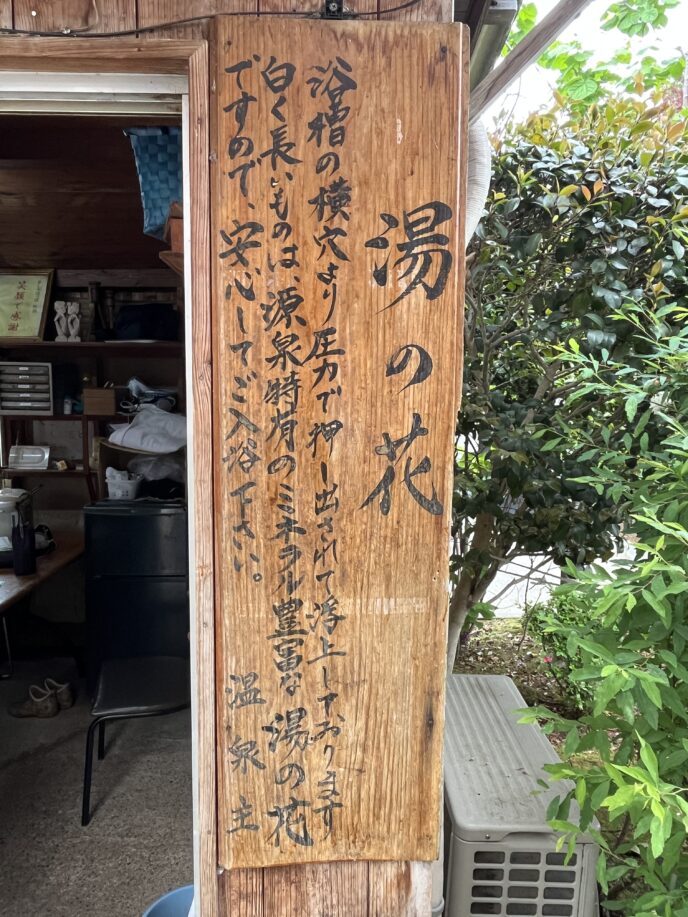 湯の花
浴槽の横穴より圧力で押し出されて浮上しております
白く長いものは、源泉特有のミネラル豊富な湯の花
ですので、安心してご入浴下さい。
温泉主
笑顔で感謝